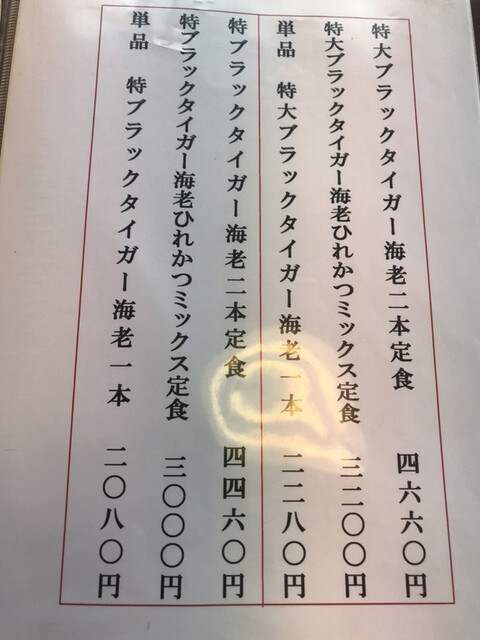 特大ブラックタイガー海老二本定食 四六六〇円
特大ブラックタイガー海老ひれかつミックス定食 三二〇〇円
単品 特大ブラックタイガー海老一本 二二八〇円
特ブラックタイガー海老二本定食 四四六〇円
特ブラックタイガー海老ひれかつミックス定食 三〇〇〇円
単品 特ブラックタイガー海老一本 二〇八〇円